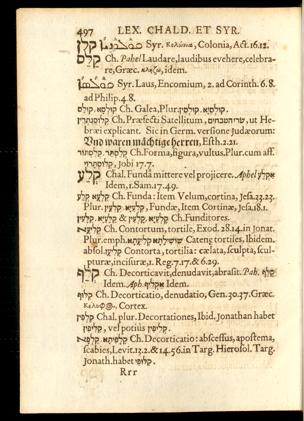 497 LEX. CHALD. ET SYR.
קלן Syr. Κολώνια, Colonia, Act. 16. 12.
קלס Ch. Pahel Laudare, laudibus evehere, celebra-
re, Græc. κληΐζω, idem.
Syr. Laus, Encomium, 2. ad Corinth. 6. 8.
ad Philip. 4. 8.
Ch. Galea, Plur.
Ch. Præfecti Satellitum, ut He-
bræi explicant. Sic in Germ. versione Judæorum:
Und waren mächtige herren, Esth. 2. 21.
Ch. Forma, figura, vultus, Plur. cum aff.
Jobi 17. 7.
קלע Chal. Fundâ mittere vel projicere. Aphel אקלע
Idem, 1. Sam. 17. 49.
קלע Ch. Funda: item Velum, cortina, Jesa. 33. 23.
Plur. קלעין, Fundæ, Item Cortinæ, Jesa. 18. 1.
Ch. Funditores.
Ch. Contortum, tortile, Exod. 28. 14. in Jonat.
Plur. emph. Catenę tortiles, Ibidem.
absol. Contorta, tortilia: cælata, sculpta, scul-
pturæ, incisuræ, 1. Reg. 7. 17. & 6. 29.
קלף Ch. Decorticavit, denudavit, abrasit. Pah. קלף
Idem. Aph. אקליף Idem.
קלוף Ch. Decorticatio, denudatio, Gen. 30. 37. Græc.
Cortex.
קלפין Chal. plur. Decortationes, Ibid. Jonathan habet
קליפין, vel potiùs קלופין.
Ch. Decorticatio: abscessus, apostema,
scabies, Levit. 13. 2. & 14. 56. in Targ. Hierosol. Targ.
Jonath. habet קלופי.
Rrr